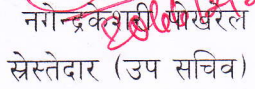 नगेन्द्रकेशरी पोखरेल
स्रेस्तेदार (उप सचिव)